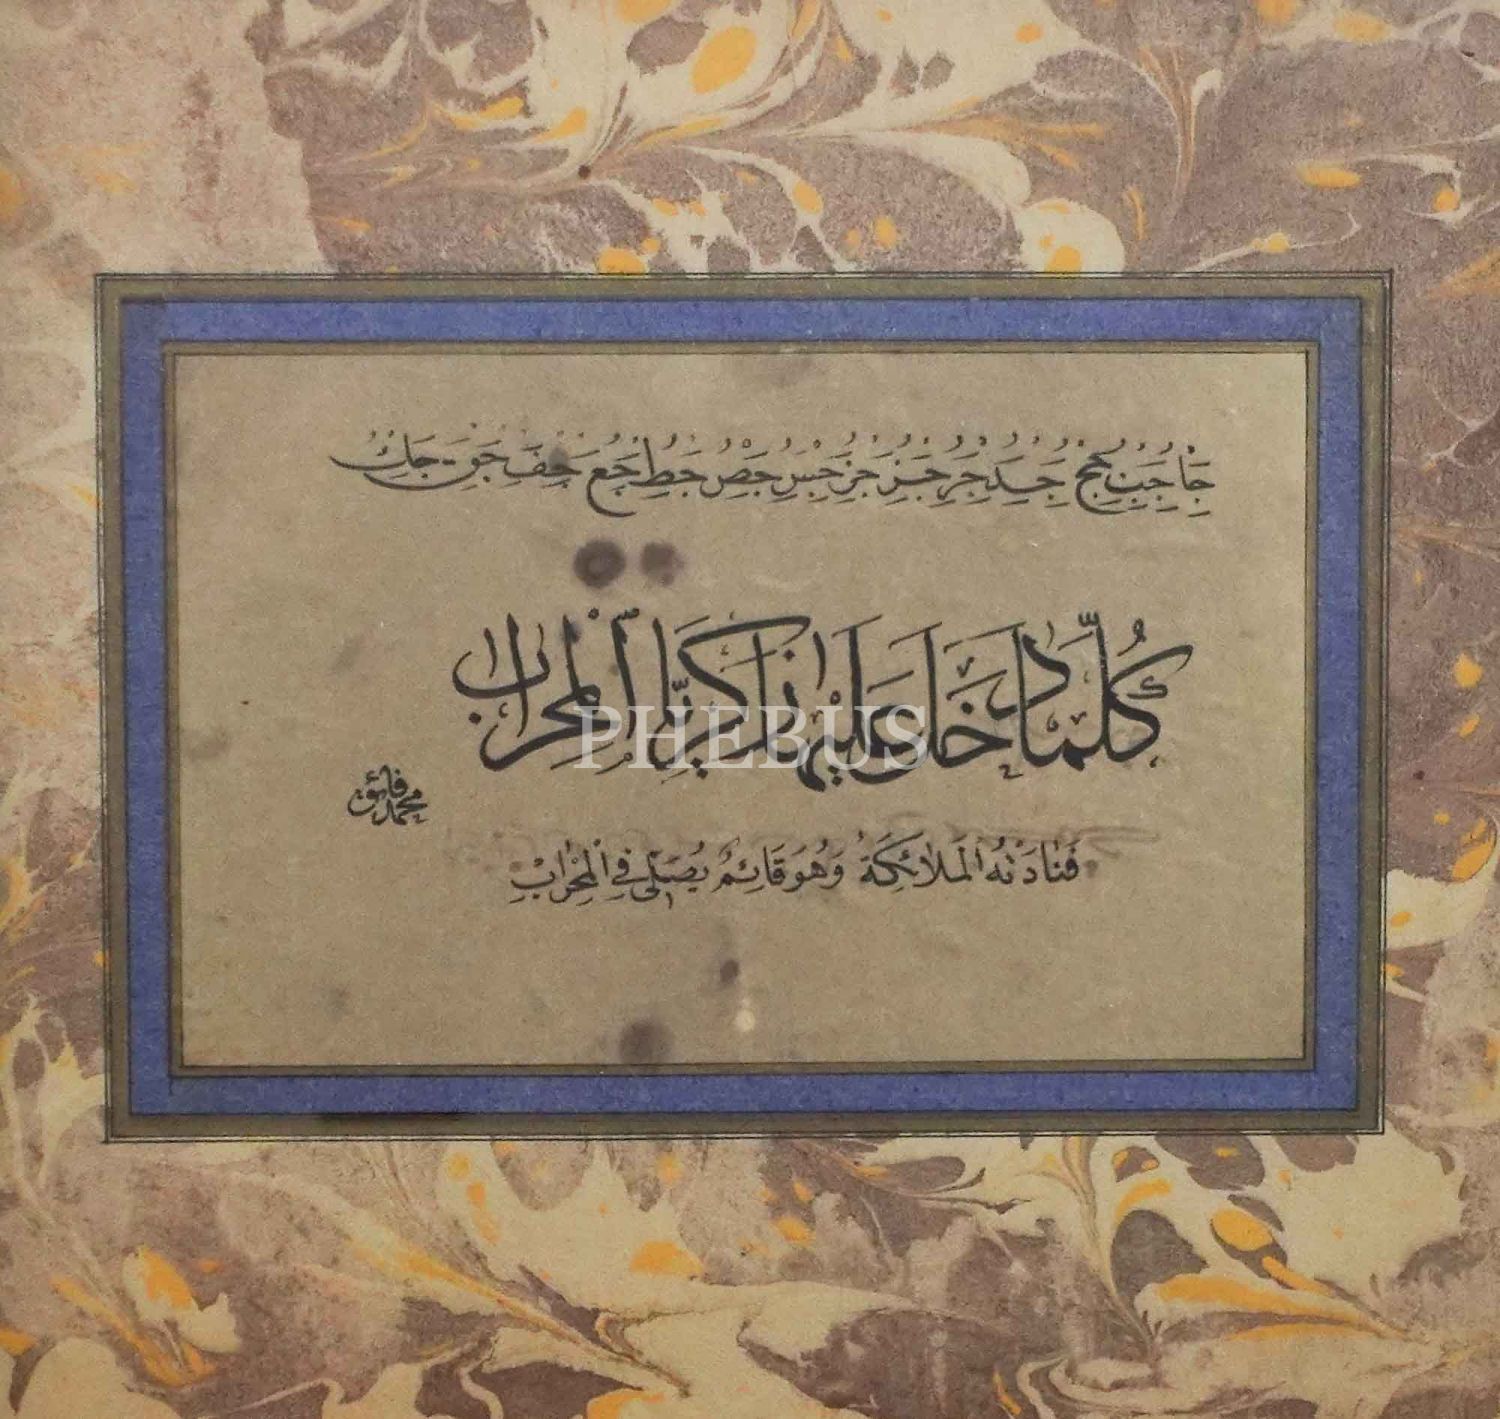 جا جب جج جد جر جز جز جس جص جط جع جف جق جك
كُلَّمَا دَخَلَ عَلَيْهَا زَكَرِيَّا الْمِحْرَابَ
محمد فائق
فَنَادَتْهُ الْمَلَائِكَةُ وَهُوَ قَائِمٌ يُصَلِّي فِي الْمِحْرَابِ
PHEBUS